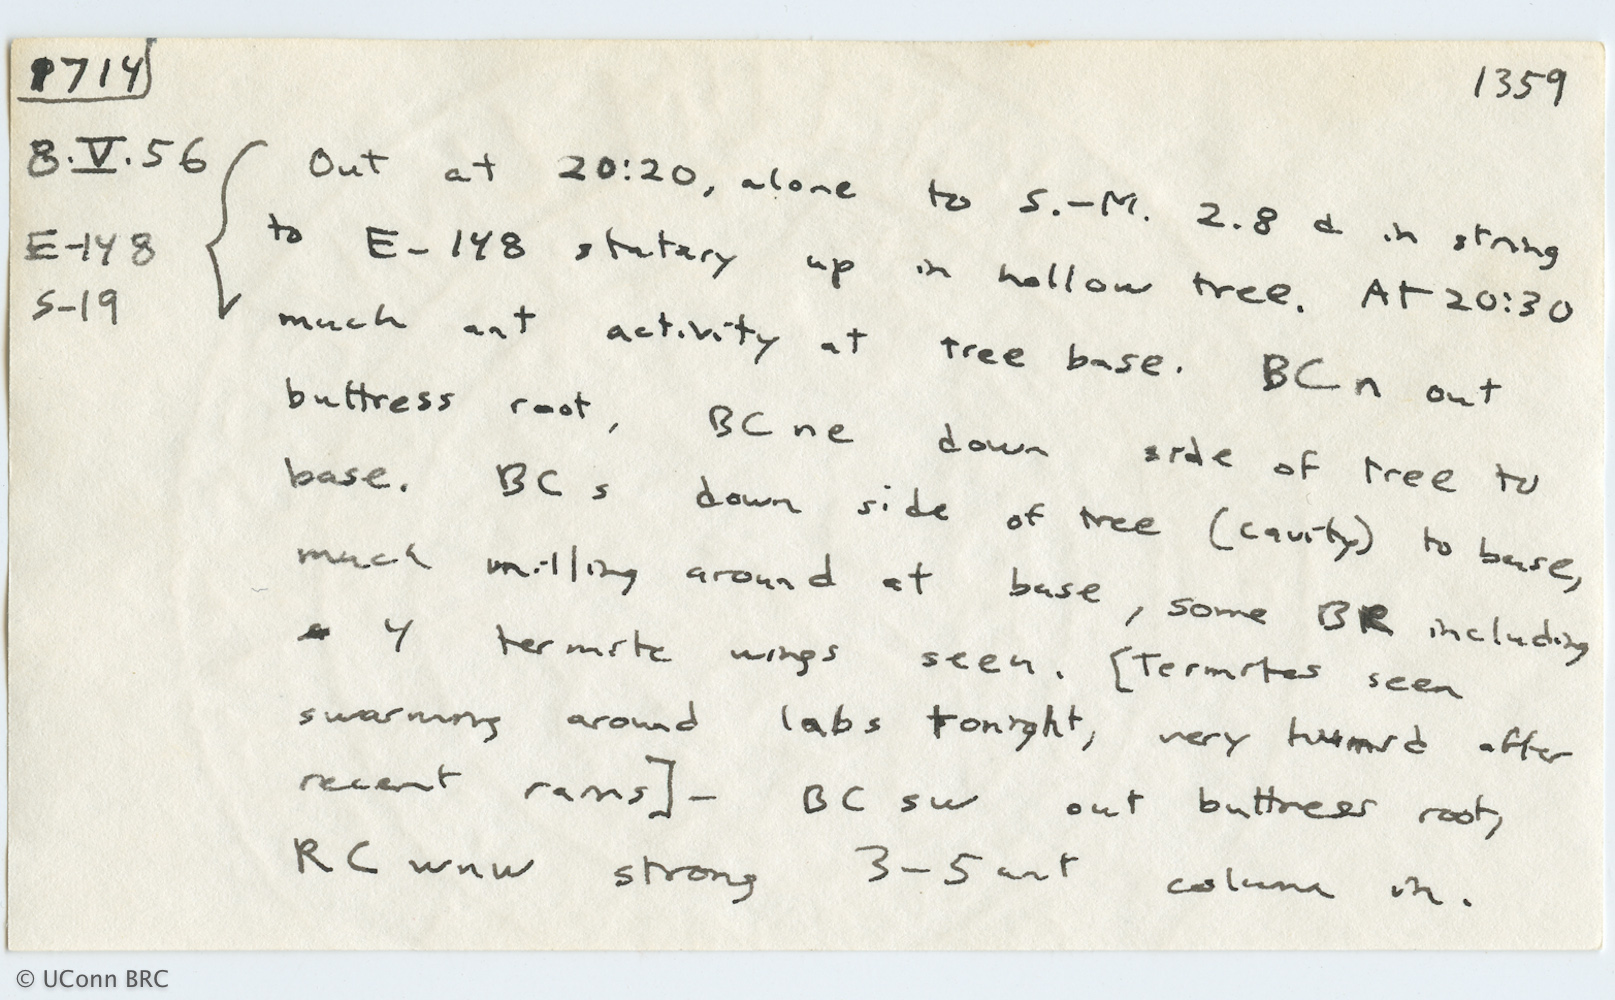 1714
1359
8.V.56
E-148
S-19
Out at 20:20, alone to S.-M. 2.8 d in string
to E-148 statary up in hollow tree. At 20:30
much ant activity at tree base. BC n out
buttress root, BC ne down side of tree to
base. BC s down side of tree (cavity) to base,
much milling around at base, some BR including
4 termite wings seen. [Termites seen
swarming around labs tonight, very humid after
recent rains] - BC sw out buttress root,
RC wnw strong 3-5 ant column in.
© UConn BRC